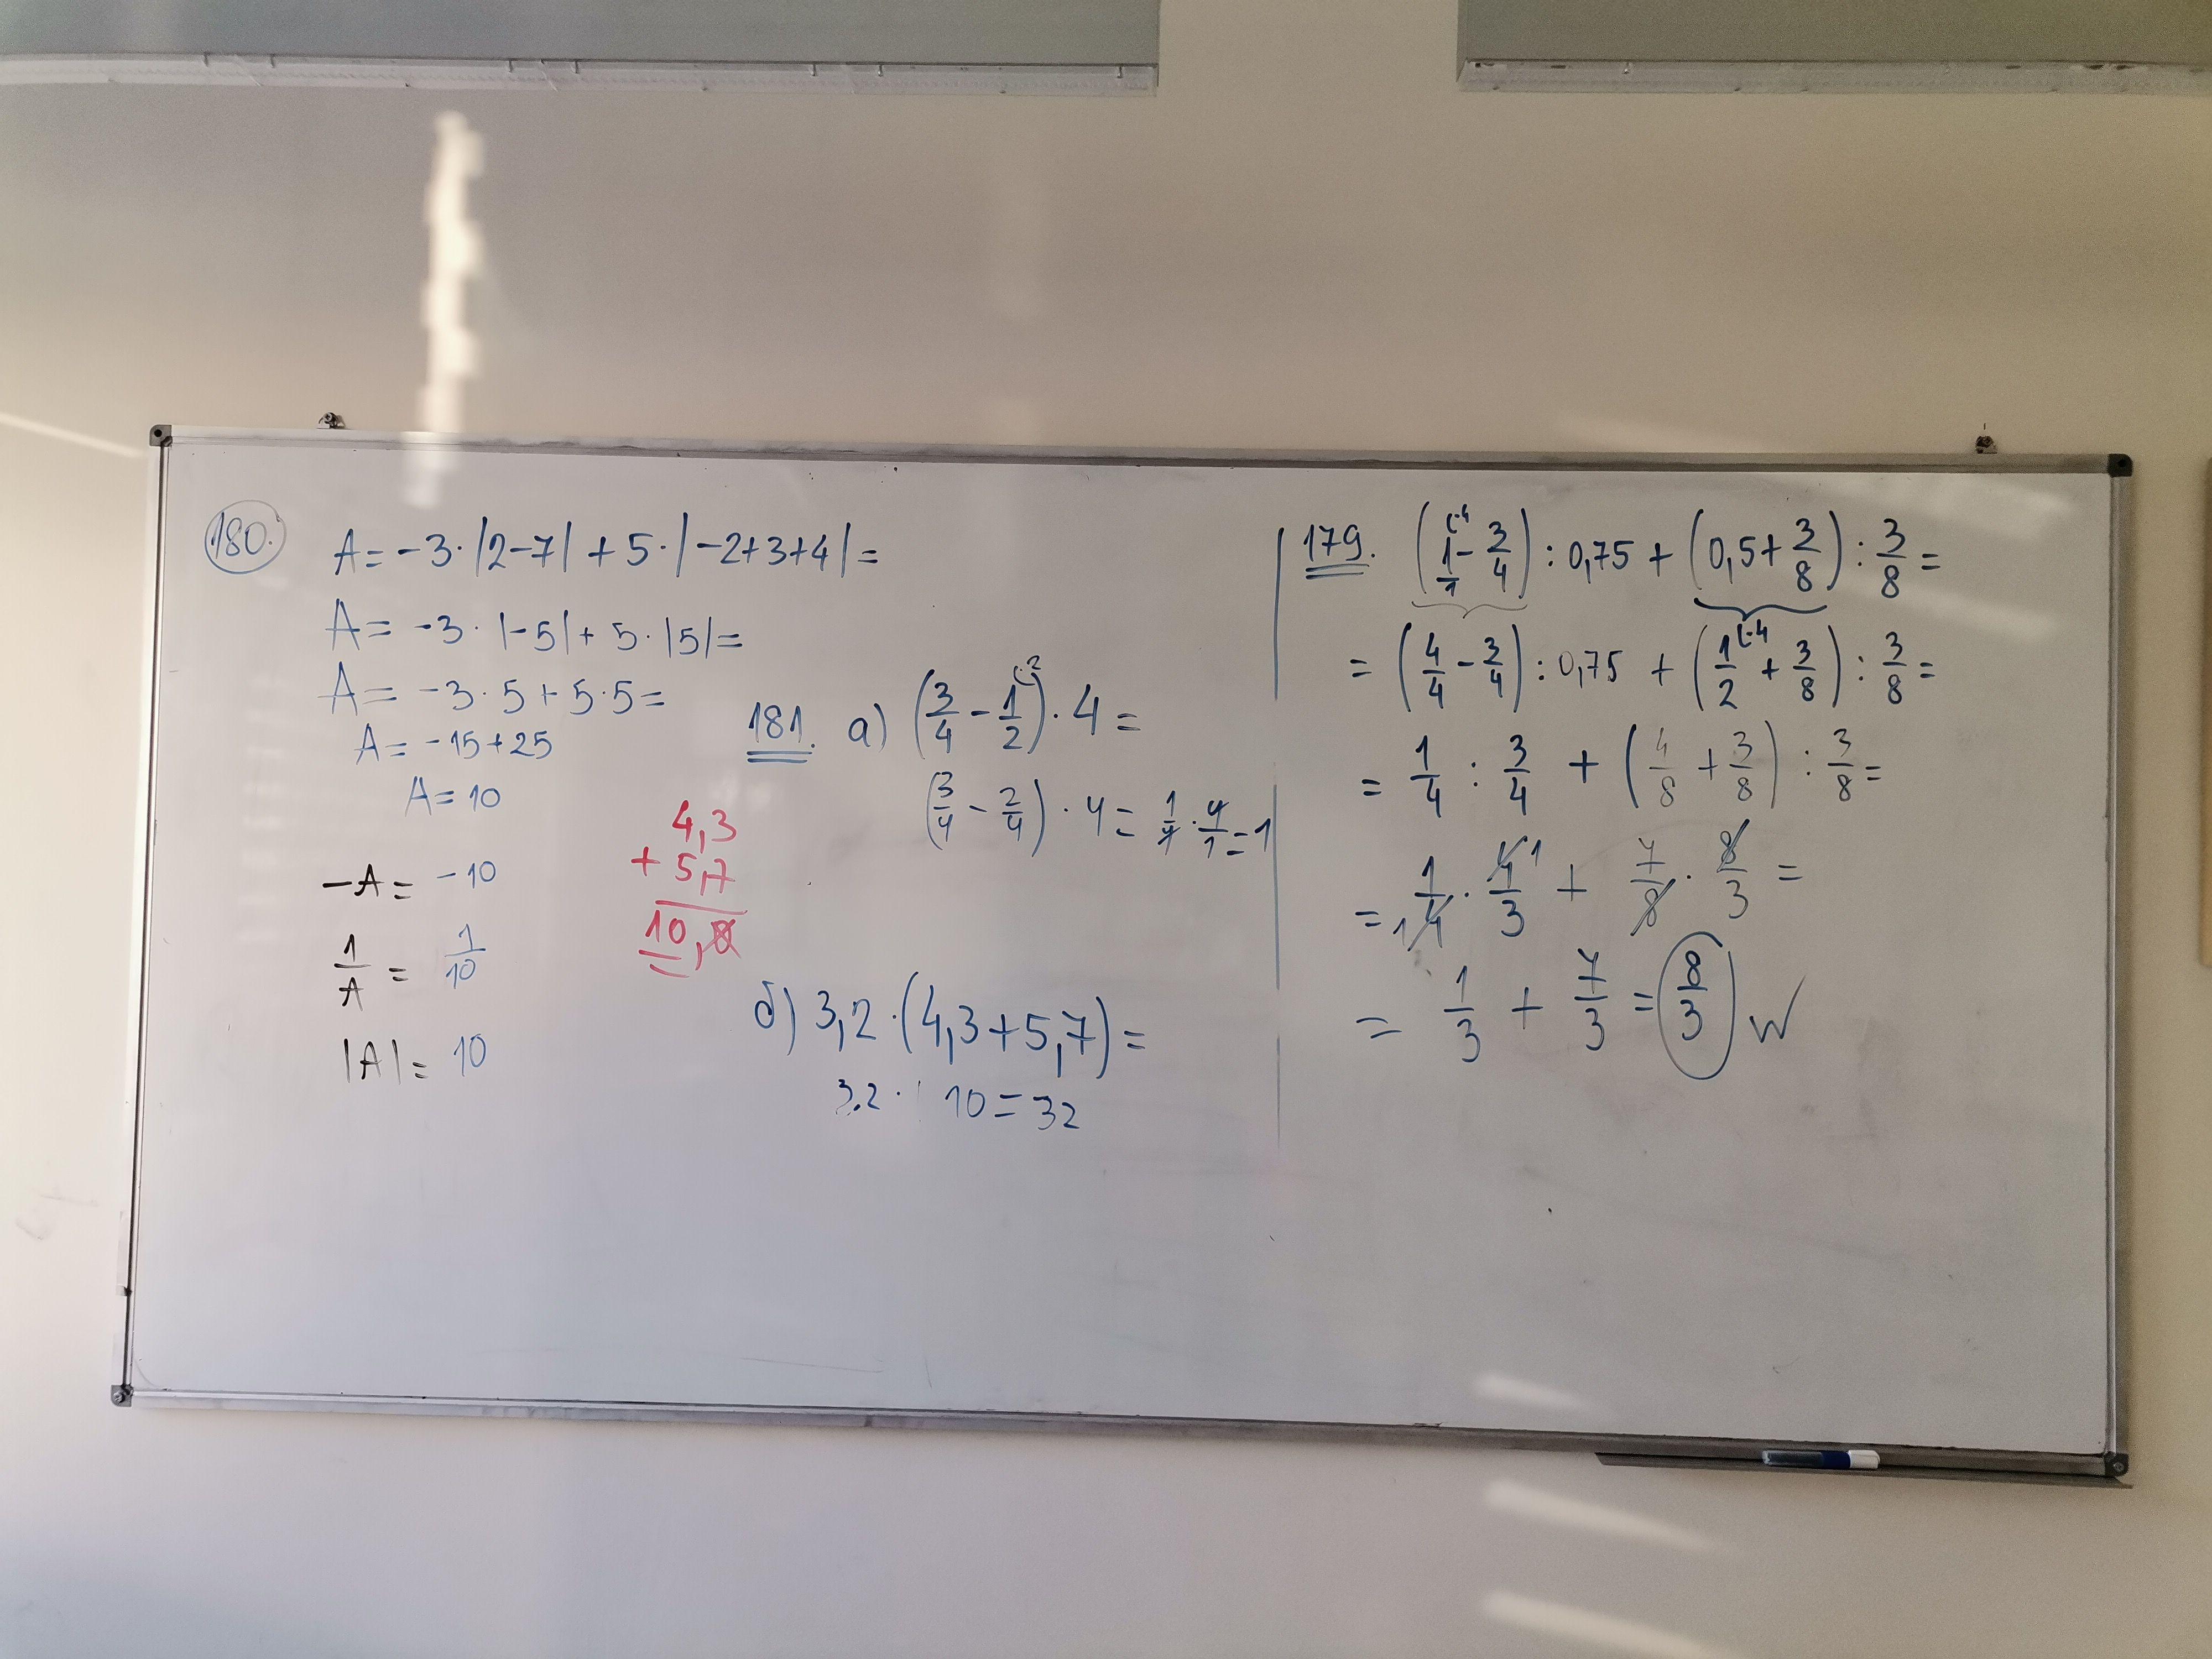 180.
A = -3·|2-7| + 5·|-2+3+4| =
A = -3·|-5| + 5·|5| =
A = -3·5 + 5·5 =
A = -15+25
A = 10
-A = -10
1/A = 1/10
|A| = 10
4,3
+ 5,7
10,0
181. а) (3/4 - 1/2)·4 =
(3/4 - 2/4)·4 = 1/4·4/1 = 1
б) 3,2·(4,3+5,7) =
3.2· 10 = 32
179. (1/1 - 3/4) : 0,75 + (0,5 + 3/8) : 3/8 =
= (4/4 - 3/4) : 0,75 + (1/2 + 3/8) : 3/8 =
= 1/4 : 3/4 + (4/8 + 3/8) : 3/8 =
= 1/4·4/3 + 7/8·8/3 =
= 1/3 + 7/3 = 8/3